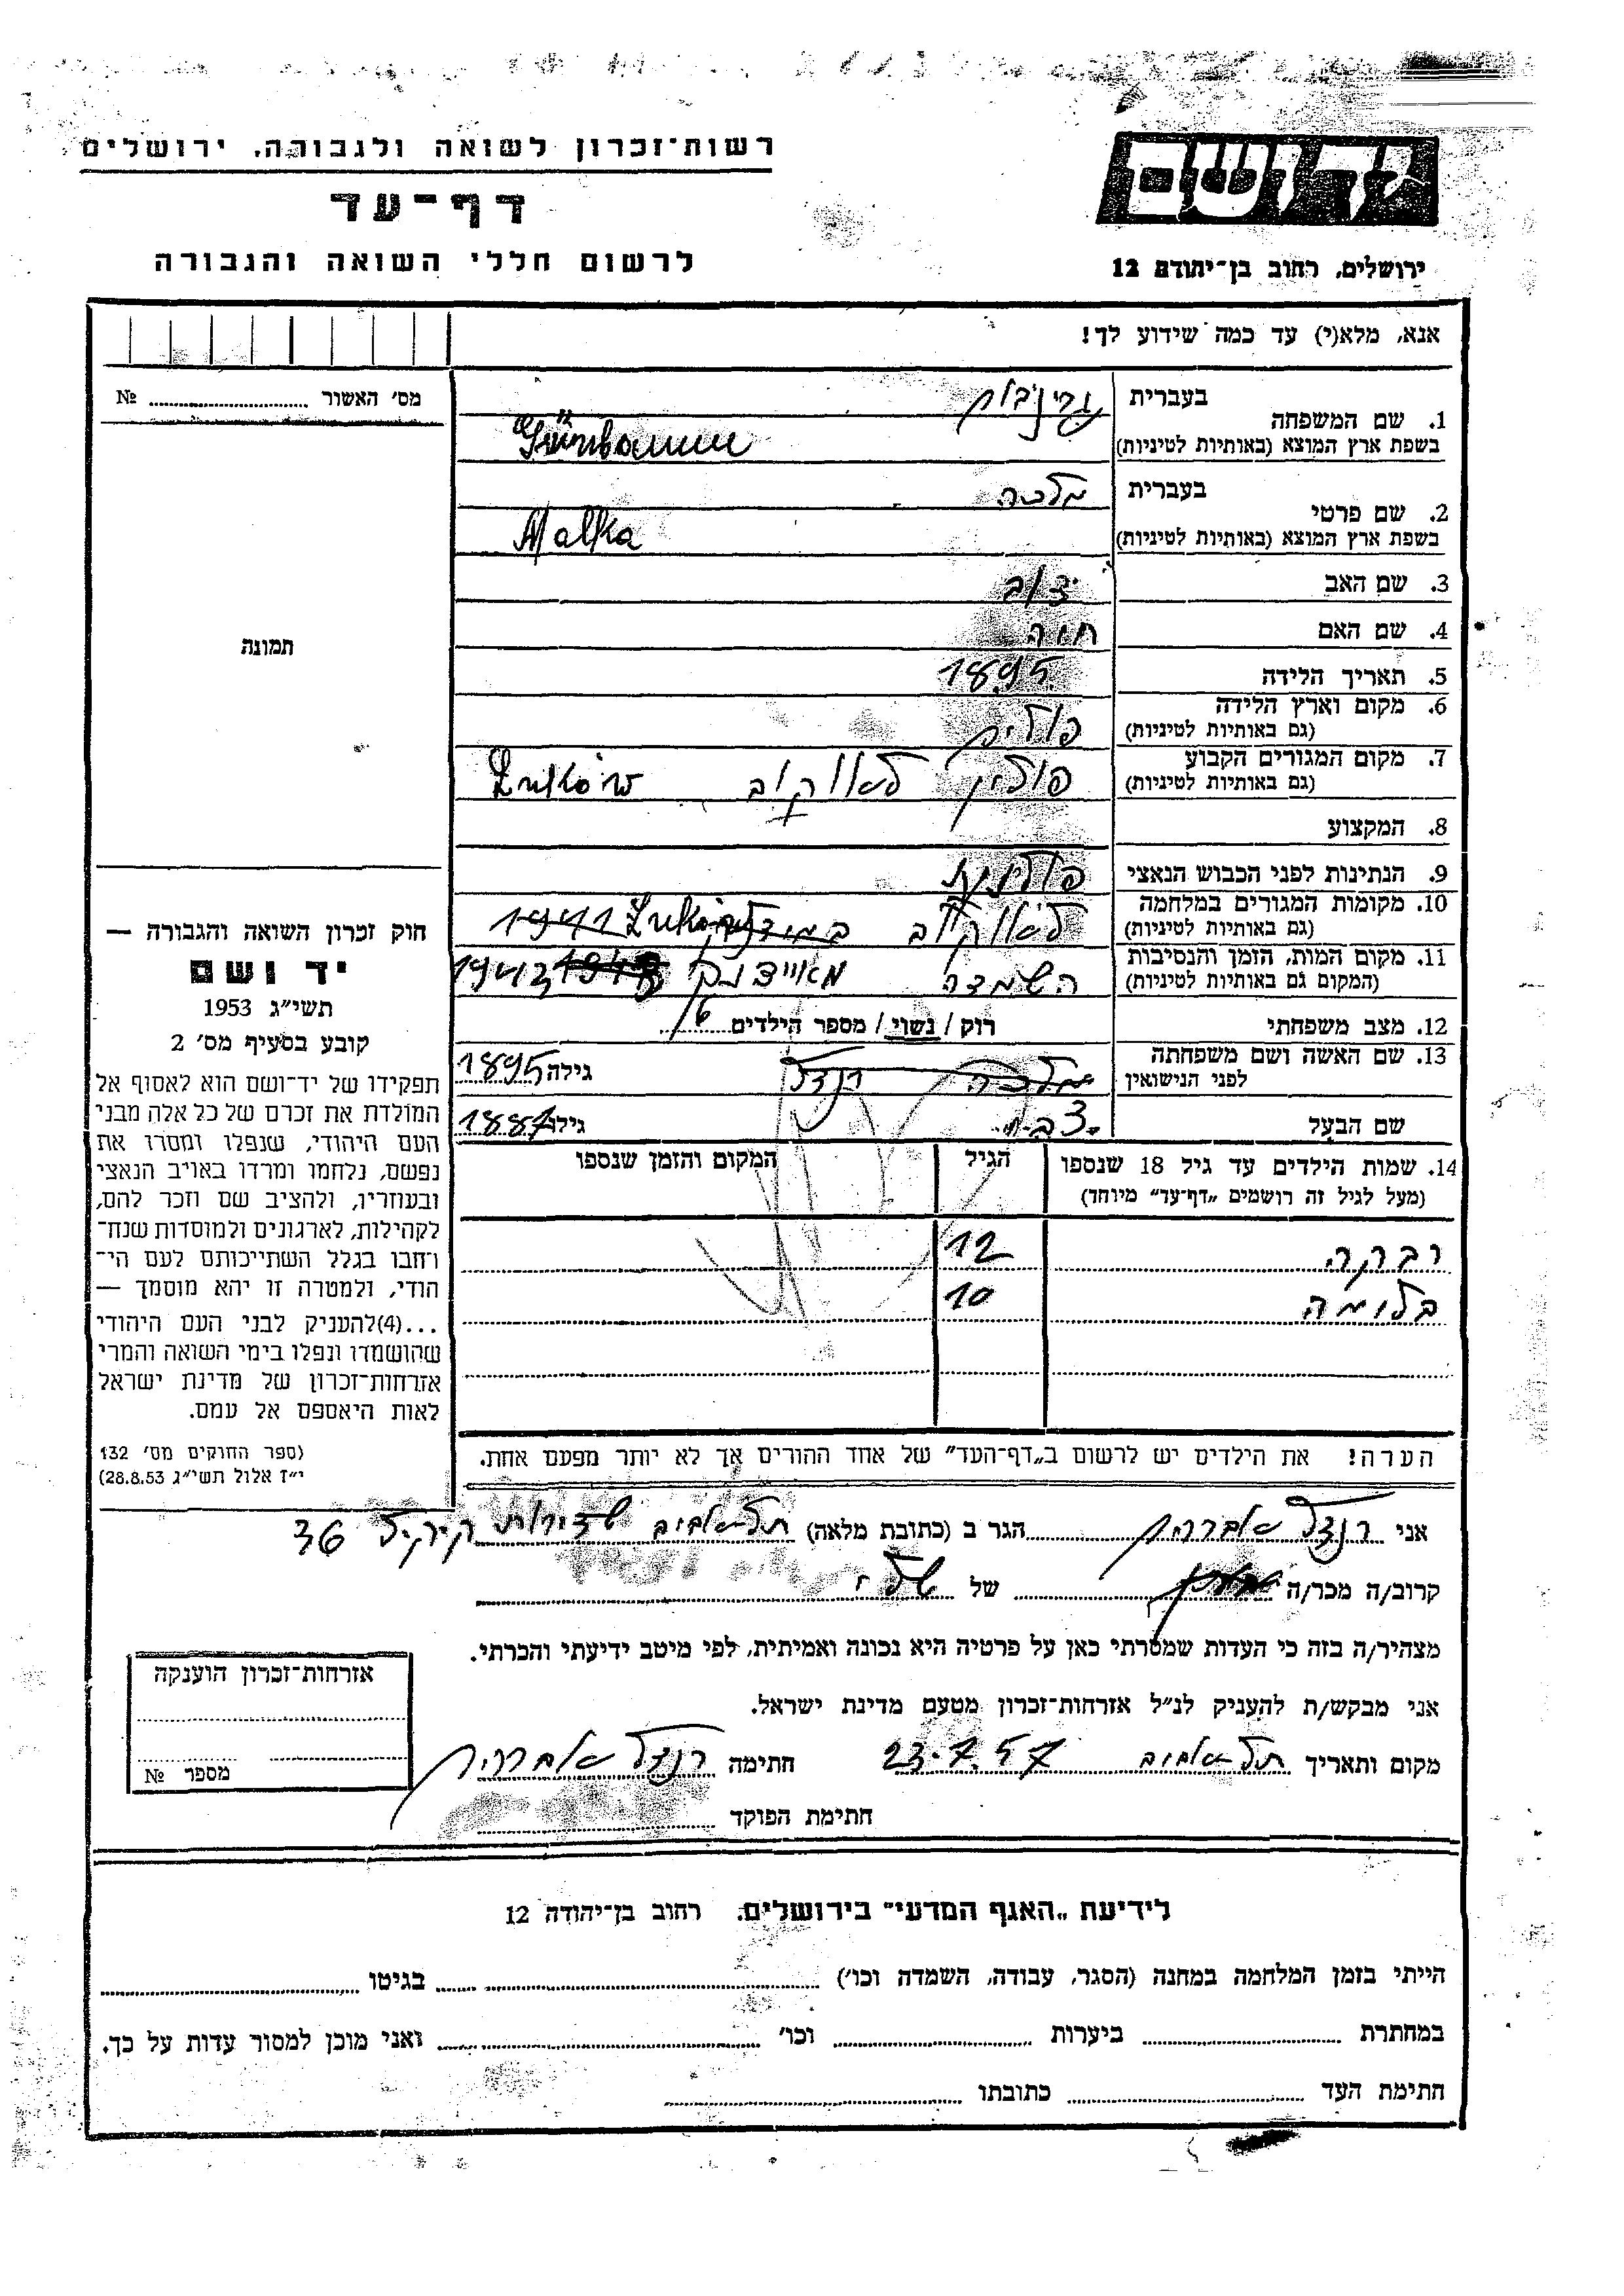 רשות־זכרון לשואה ולגבורה, ירושלים
דף־עד
לרשום חללי השואה והגבורה
ידושם
ירושלים, רחוב בן־יהודה 12
אנא, מלא(י) עד כמה שידוע לך!
מס׳ האשור № 
תמונה
1. שם המשפחה בעברית גרינבוים
בשפת ארץ המוצא (באותיות לטיניות) Grünbaum
2. שם פרטי בעברית מלכה
בשפת ארץ המוצא (באותיות לטיניות) Malka
3. שם האב
4. שם האם חוה
5. תאריך הלידה 1895
6. מקום וארץ הלידה פולין
(גם באותיות לטיניות)
7. מקום המגורים הקבוע פולין לאוקוב Łuków
(גם באותיות לטיניות)
8. המקצוע
9. הנתינות לפני הכבוש הנאצי פולנית
10. מקומות המגורים במלחמה לאוקוב Łuków 1941
(גם באותיות לטיניות)
11. מקום המות, הזמן והנסיבות השמדה מאיידנק 1942
(המקום גם באותיות לטיניות)
12. מצב משפחתי רוק / נשוי / מספר הילדים 6
13. שם האשה ושם משפחתה מלכה רנדל גילה 1895
לפני הנישואין
שם הבעל גילו 1887
14. שמות הילדים עד גיל 18 שנספו הגיל המקום והזמן שנספו
(מעל לגיל זה רושמים „דף־עד״ מיוחד)
רבקה 12
בלומה 10
הערה! את הילדים יש לרשום ב„דף־העד״ של אחד ההורים אך לא יותר מפעם אחת.
חוק זכרון השואה והגבורה —
יד ושם
תשי״ג 1953
קובע בסעיף מס׳ 2
תפקידו של יד־ושם הוא לאסוף אל
המולדת את זכרם של כל אלה מבני
העם היהודי, שנפלו ומסרו את
נפשם, נלחמו ומרדו באויב הנאצי
ובעוזריו, ולהציב שם וזכר להם,
לקהילות, לארגונים ולמוסדות שנח־
רחבו בגלל השתייכותם לעם הי־
הודי, ולמטרה זו יהא מוסמך —
...(4)להעניק לבני העם היהודי
שהושמדו ונפלו בימי השואה והמרי
אזרחות־זכרון של מדינת ישראל
לאות היאספם אל עמם.
(ספר החוקים מס׳ 132
י״ז אלול תשי״ג 28.8.53)
אני רנדל אברהם הגר ב (כתובת מלאה) תל־אביב שדירות 36
קרוב/ה מכר/ה של שלי
מצהיר/ה בזה כי העדות שמסרתי כאן על פרטיה היא נכונה ואמיתית, לפי מיטב ידיעתי והכרתי.
אני מבקש/ת להעניק לנ״ל אזרחות־זכרון מטעם מדינת ישראל.
מקום ותאריך תל־אביב 23.7.57 חתימה רנדל אברהם
חתימת הפוקד
אזרחות־זכרון הוענקה
מספר №
לידיעת „האגף המדעי״ בירושלים, רחוב בן־יהודה 12
הייתי בזמן המלחמה במחנה (הסגר, עבודה, השמדה וכו׳) בגיטו
במחתרת ביערות וכו׳ ואני מוכן למסור עדות על כך.
חתימת העד כתובתו